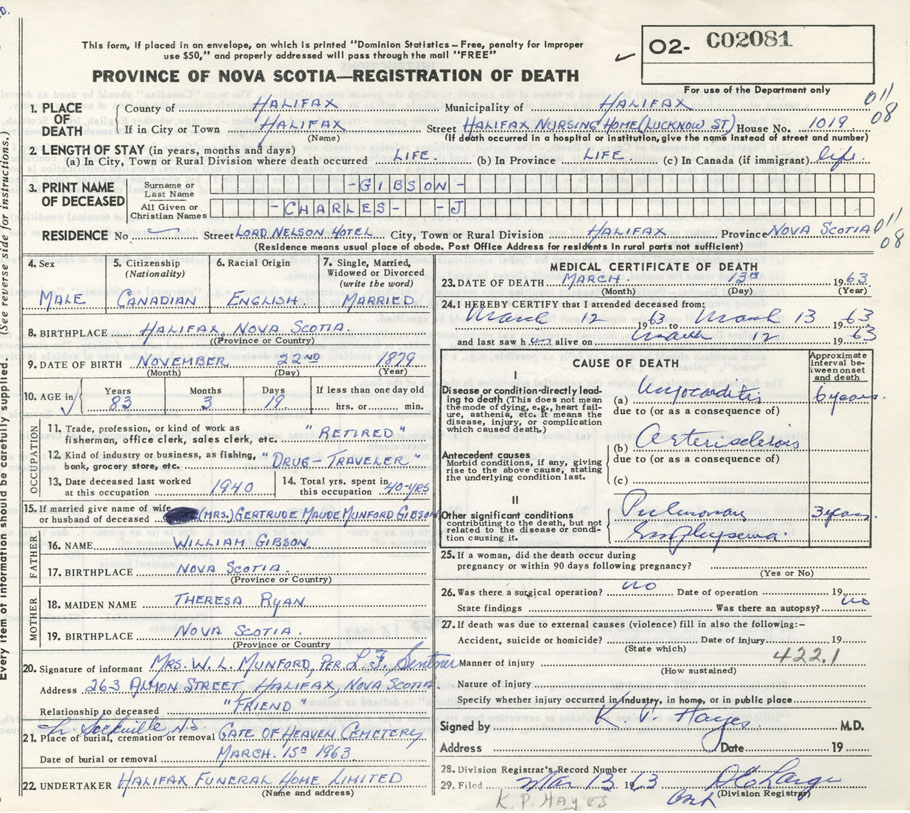 This form, if placed in an envelope, on which is printed "Dominion Statistics – Free, penalty for improper
use $50," and properly addressed will pass through the mail "FREE"
O2- C02081
PROVINCE OF NOVA SCOTIA—REGISTRATION OF DEATH
For use of the Department only
1. PLACE OF DEATH County of HALIFAX Municipality of HALIFAX 011
If in City or Town HALIFAX Street HALIFAX NURSING HOME (LUCKNOW ST) House No. 1019 08
(Name) (If death occurred in a hospital or institution, give the name instead of street and number)
2. LENGTH OF STAY (in years, months and days)
(a) In City, Town or Rural Division where death occurred LIFE. (b) In Province LIFE. (c) In Canada (if immigrant) life.
3. PRINT NAME OF DECEASED Surname or Last Name -GIBSON-
All Given or Christian Names -CHARLES- -J
RESIDENCE No Street LORD NELSON HOTEL City, Town or Rural Division HALIFAX Province NOVA SCOTIA 011
(Residence means usual place of abode. Post Office Address for residents in rural parts not sufficient) 08
4. Sex MALE
5. Citizenship (Nationality) CANADIAN
6. Racial Origin ENGLISH.
7. Single, Married, Widowed or Divorced (write the word) MARRIED
8. BIRTHPLACE HALIFAX NOVA SCOTIA.
(Province or Country)
9. DATE OF BIRTH NOVEMBER 22ND 1879
(Month) (Day) (Year)
10. AGE in Years 83 Months 3 Days 19 If less than one day old hrs. or min.
OCCUPATION
11. Trade, profession, or kind of work as fisherman, office clerk, sales clerk, etc. "RETIRED"
12. Kind of industry or business, as fishing, bank, grocery store, etc. "DRUG-TRAVELER"
13. Date deceased last worked at this occupation 1940
14. Total yrs. spent in this occupation 40-YRS
15. If married give name of wife or husband of deceased (MRS.) GERTRUDE MAUDE MUNFORD GIBSON
FATHER
16. NAME WILLIAM GIBSON.
17. BIRTHPLACE NOVA SCOTIA.
(Province or Country)
MOTHER
18. MAIDEN NAME THERESA RYAN
19. BIRTHPLACE NOVA SCOTIA.
(Province or Country)
20. Signature of informant MRS. W. L. MUNFORD, PER L. F.
Address 263 ALMON STREET HALIFAX, NOVA SCOTIA
Relationship to deceased "FRIEND"
Sackville N.S.
21. Place of burial, cremation or removal GATE OF HEAVEN CEMETERY
Date of burial or removal MARCH. 15th 1963
22. UNDERTAKER HALIFAX FUNERAL HOME LIMITED
(Name and address)
MEDICAL CERTIFICATE OF DEATH
23. DATE OF DEATH MARCH 13th 1963
(Month) (Day) (Year)
24. I HEREBY CERTIFY that I attended deceased from:
March 12 1963 to March 13 1963
and last saw h alive on March 12 1963
CAUSE OF DEATH
Approximate interval between onset and death
I
Disease or condition directly leading to death (This does not mean the mode of dying, e.g., heart failure, asthenia, etc. It means the disease, injury, or complication which caused death.)
(a) Myocarditis 6 years.
due to (or as a consequence of)
Antecedent causes
Morbid conditions, if any, giving rise to the above cause, stating the underlying condition last.
(b) Arteriosclerosis
due to (or as a consequence of)
(c)
II
Other significant conditions
contributing to the death, but not related to the disease or condition causing it.
Pulmonary 3 years.
Emphysema.
25. If a woman, did the death occur during pregnancy or within 90 days following pregnancy?
(Yes or No)
26. Was there a surgical operation? no Date of operation 19
State findings Was there an autopsy? no
27. If death was due to external causes (violence) fill in also the following:–
Accident, suicide or homicide? Date of injury 19
(State which)
Manner of injury 422.1
(How sustained)
Nature of injury
Specify whether injury occurred in industry, in home, or in public place
Signed by K. P. Hayes. M.D.
Address Date 19
28. Division Registrar's Record Number
29. Filed Mar 13 1963
(Division Registrar)
K. P. HAYES
Every item of information should be carefully supplied. (See reverse side for instructions.)